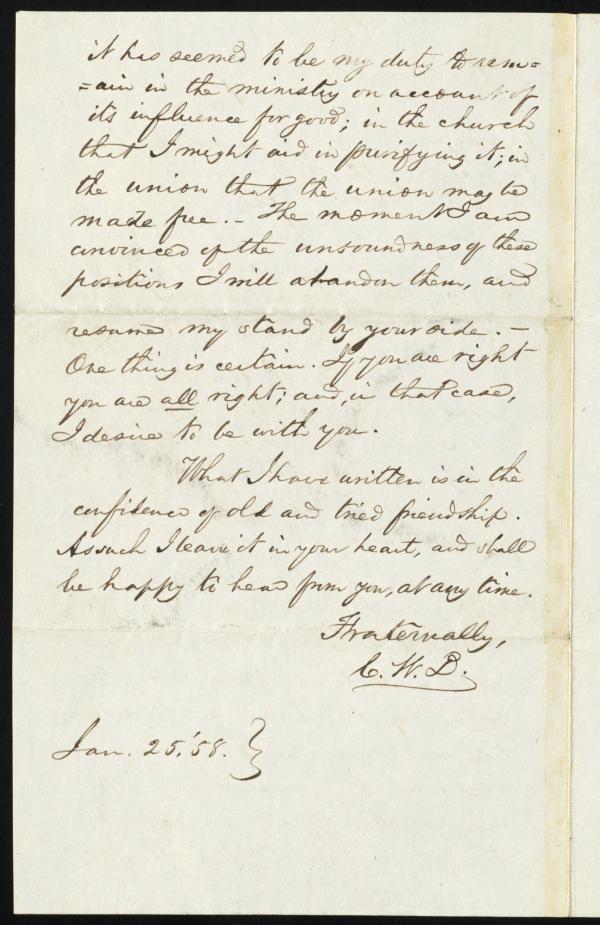 it has seemed to be my duty to rem=
=ain in the ministry on account of
its influence for good; in the church
that I might aid in purifying it; in
the union that the union may be
made free. — The moment I am
convinced of the unsoundness of these
positions I will abandon them, and
resume my stand by your side. —
One thing is certain. If you are right
you are all right; and, in that case,
I desire to be with you.
What I have written is in the
confidence of old and tried friendship.
As such I leave it in your heart, and shall
be happy to hear from you, at any time.
Fraternally,
C. W. D.
Jan. 25, '58. }